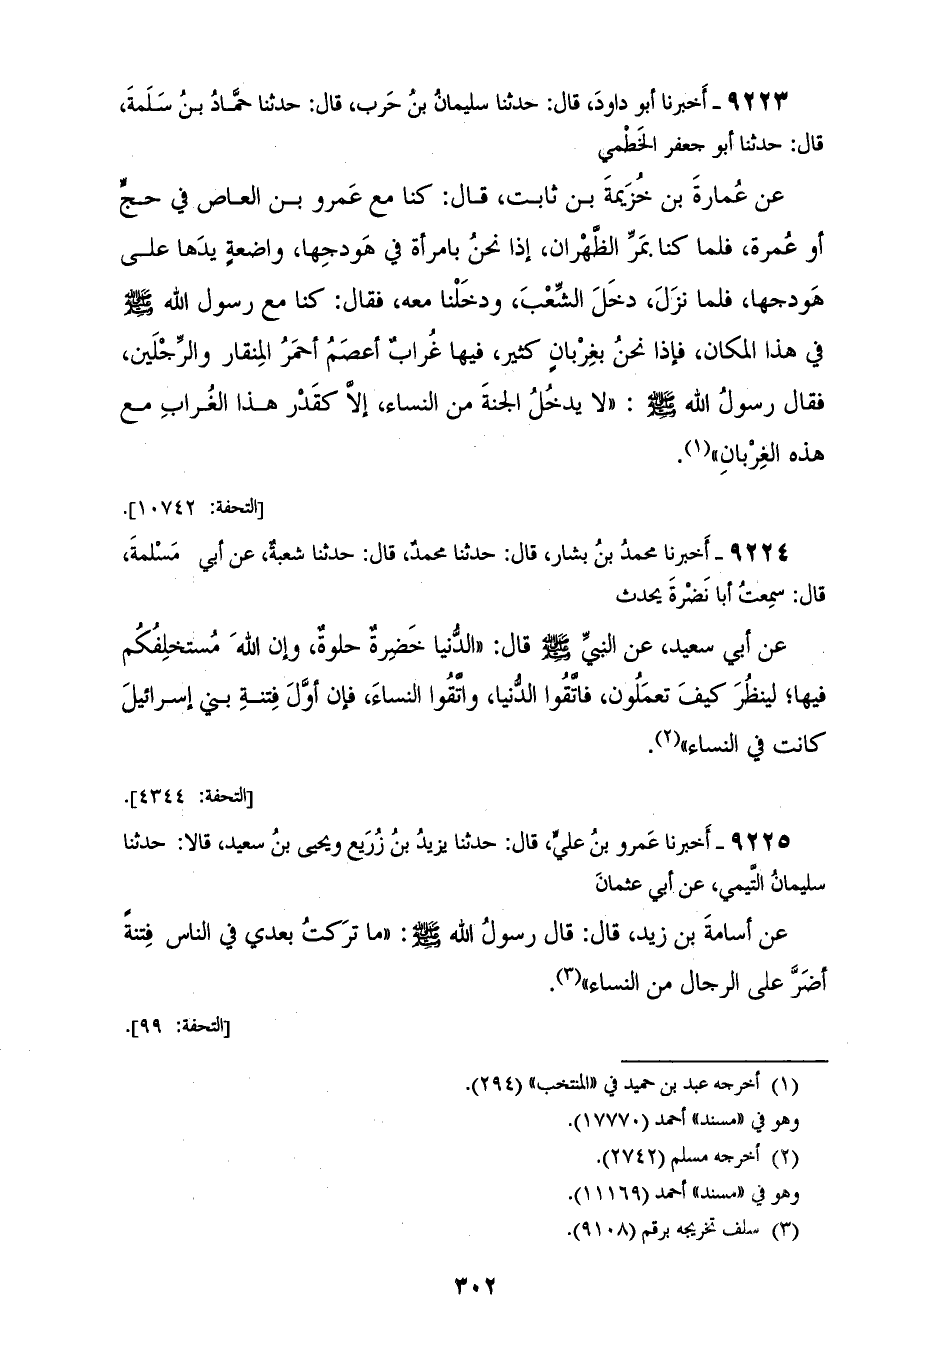 ٩٢٢٣ ـ أَخبرنا أبو داودَ، قال: حدثنا سليمانُ بنُ حَرب، قال: حدثنا حمَّادُ بنُ سَلَمةَ،
قال: حدثنا أبو جعفر الخَطْمي
عن عُمارةَ بن خُزَيمةَ بـن ثابت، قـال: كنا مع عَمرو بـن العـاص في حـجٍّ
أو عُمرة، فلما كنا بمَرِّ الظَّهْران، إذا نحنُ بامرأة في هَودجِها، واضعةٍ يدَها علـى
هَودجها، فلما نزَلَ، دخَلَ الشِّعْبَ، ودخَلْنا معه، فقال: كنا مع رسول الله ﷺ
في هذا المكان، فإذا نحنُ بغِرْبانٍ كثير، فيها غُرابٌ أعصَمُ أحمَرُ المِنقار والرِّجْلَين،
فقال رسولُ الله ﷺ : «لا يدخُلُ الجنةَ من النساء، إلاَّ كقَدْر هـذا الغُـرابِ مـع
هذه الغِرْبانِ»(١).
[التحفة: ١٠٧٤٢].
٩٢٢٤ ـ أَخبرنا محمدُ بنُ بشار، قال: حدثنا محمدٌ، قال: حدثنا شعبةٌ، عن أبي مَسْلمةَ،
قال: سمِعتُ أبا نَضْرةَ يحدث
عن أبي سعيد، عن النبيِّ ﷺ قال: «الدُّنيا خَضِرةٌ حلوةٌ، وإن اللهَ مُستخلِفُكُم
فيها؛ لينظُرَ كيفَ تعمَلُون، فاتَّقُوا الدُّنيا، واتَّقُوا النساءَ، فإن أوَّلَ فِتنـةِ بـني إسـرائيلَ
كانت في النساء»(٢).
[التحفة: ٤٣٤٤].
٩٢٢٥ ـ أَخبرنا عَمرو بنُ عليٍّ، قال: حدثنا يزيدُ بنُ زُرَيع ويحيى بنُ سعيد، قالا: حدثنا
سليمانُ التَّيمي، عن أبي عثمانَ
عن أسامةَ بن زيد، قال: قال رسولُ الله ﷺ : «ما تركتُ بعدي في الناس فِتنةً
أضَرَّ على الرجال من النساء»(٣).
[التحفة: ٩٩].
(١) أخرجه عبد بن حميد في «المنتخب» (٢٩٤).
وهو في «مسند» أحمد (١٧٧٧٠).
(٢) أخرجه مسلم (٢٧٤٢).
وهو في «مسند» أحمد (١١١٦٩).
(٣) سلف تخريجه برقم (٩١٠٨).
٣٠٢